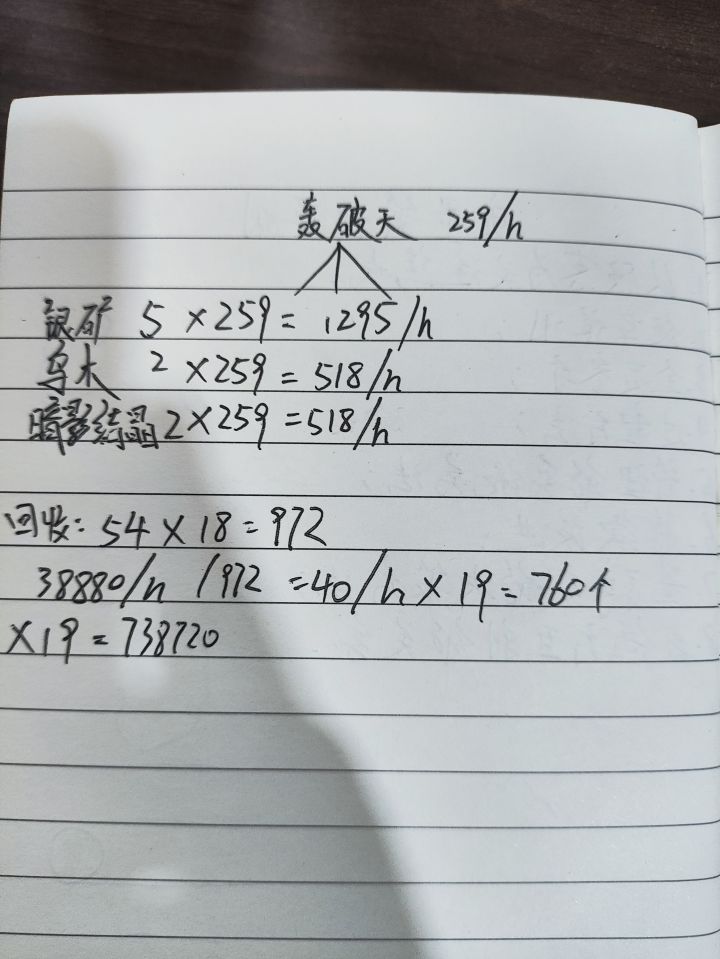 轰破天 259/h
银矿 5×259=1295/h
乌木 2×259=518/h
暗影结晶 2×259=518/h
回收: 54×18=972
38880/h /972 =40/h×19=760个
×19=738720